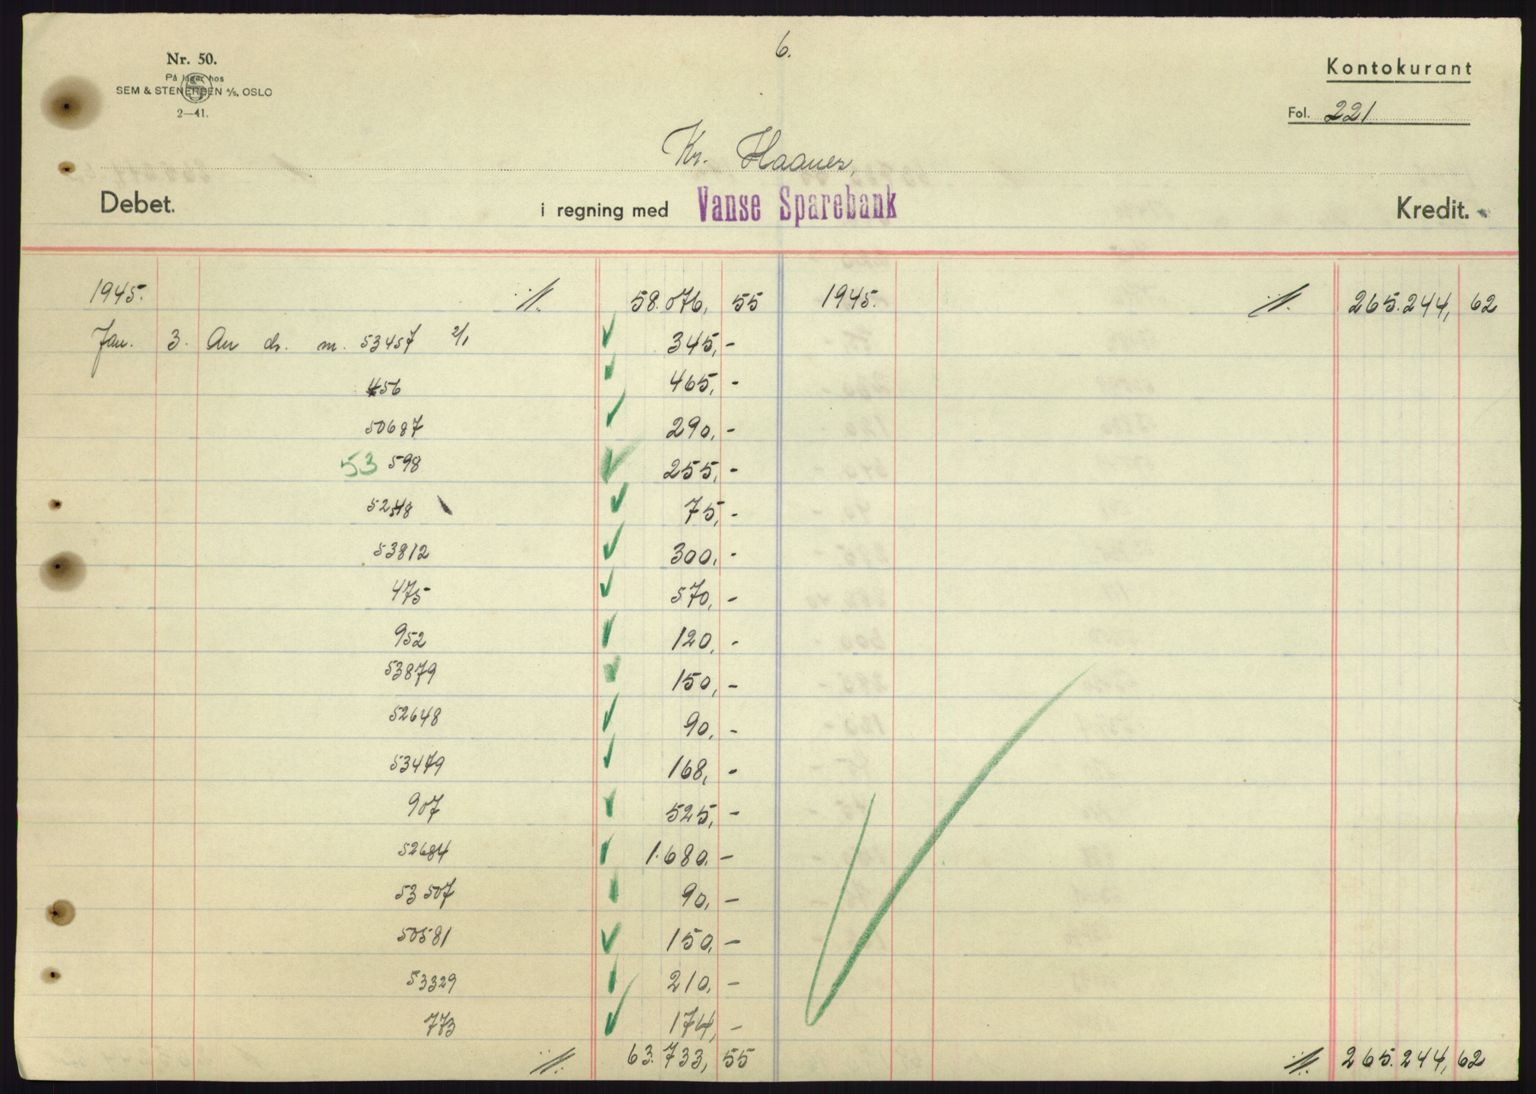 6.
Nr. 50.
På lager hos
SEM & STENERSEN A/S, OSLO
2—41.
Kontokurant
Fol. 221
Kr. Haanes,
Debet. i regning med Vanse Sparebank Kredit.
1945. 58.076, 55 1945. 265.244, 62
Jan. 3. An ch. m. 53457 2/1 345,-
456 465,-
50687 290,-
53 598 255,-
75,-
53812 300,-
475 570,-
952 120,-
53879 150,-
52648 90,-
53479 168,-
907 525,-
52684 1.680.-
53507 90,-
50581 150,-
53329 210,-
773 174,-
63.733, 55 265.244, 62